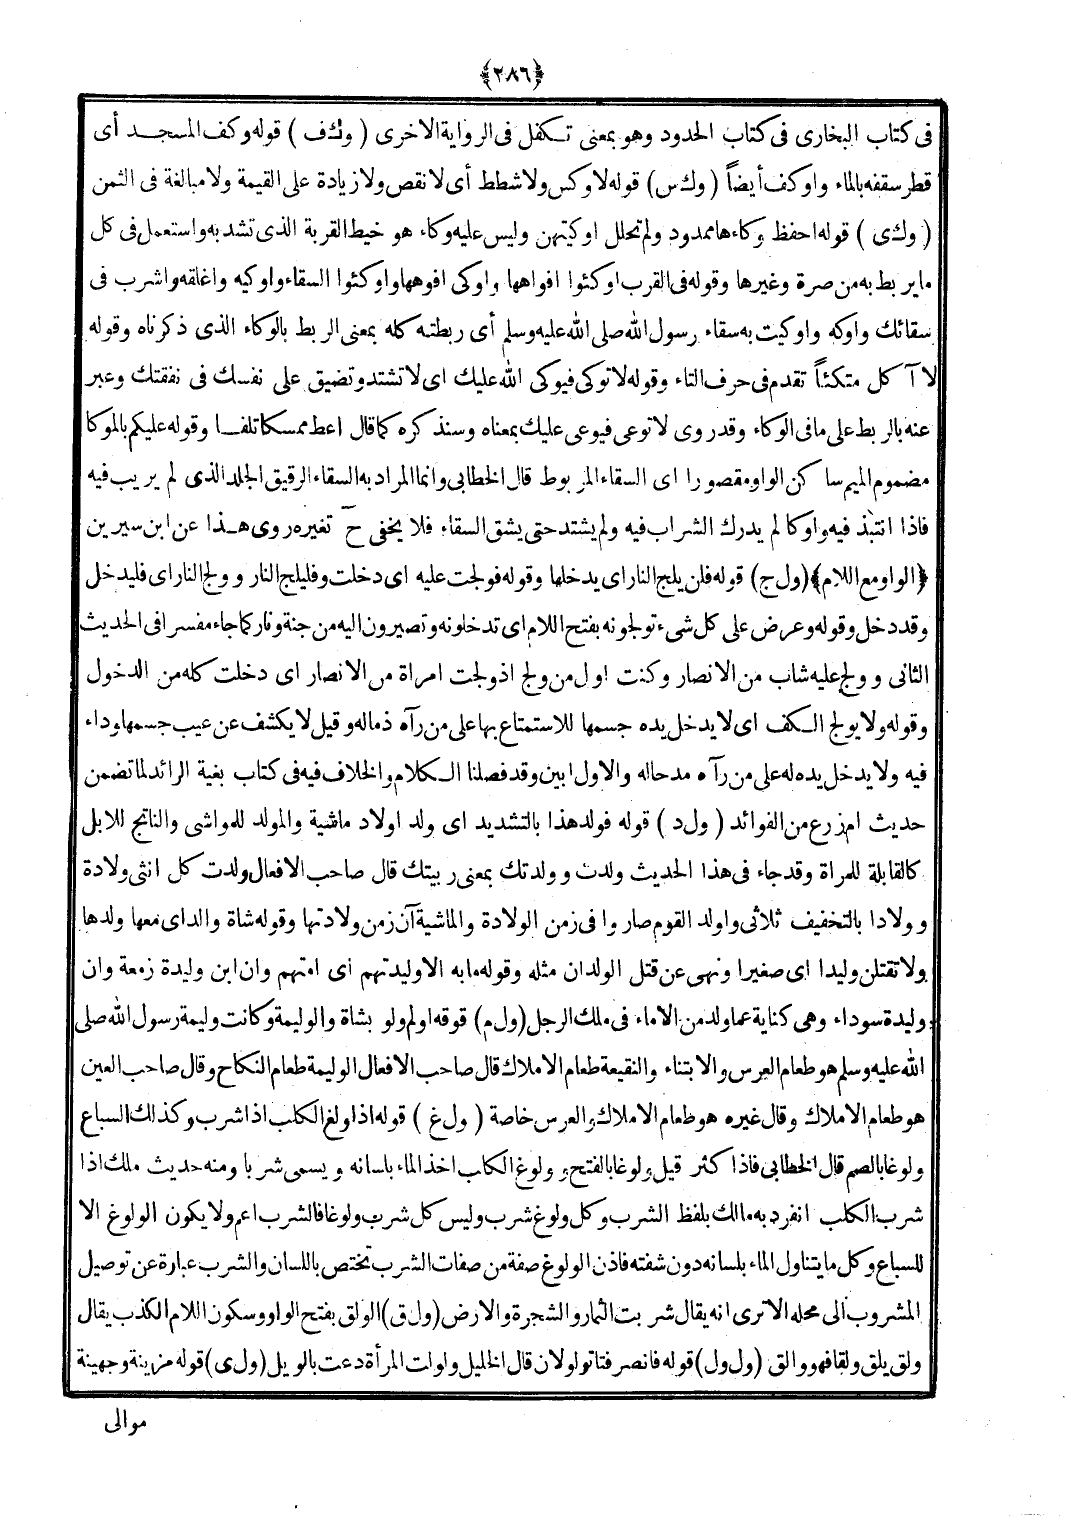 ﴿٢٨٦﴾
فى كتاب البخارى فى كتاب الحدود وهو بمعنى تكفل فى الرواية الاخرى ( وك ف ) قوله وكف المسجد أى
قطر سقفه بالماء واوكف أيضاً ( وك س ) قوله لا وكس ولا شطط أى لا نقص ولا زيادة على القيمة ولا مبالغة فى الثمن
( وك ى ) قوله احفظ وكاءها ممدود ولم تحلل اوكيتهن وليس عليه وكاء هو خيط القربة الذى تشد به واستعمل فى كل
ما يربط به من صرة وغيرها وقوله فى القرب اوكئوا افواهها واوكى افوهها واوكئوا السقاء واوكيه واغلقه واشرب فى
سقائك واوكه واوكيت به سقاء رسول الله صلى الله عليه وسلم أى ربطته كله بمعنى الربط بالوكاء الذى ذكرناه وقوله
لا آكل متكئاً تقدم فى حرف التاء وقوله لا توكى فيوكى الله عليك اى لا تشتد وتضيق على نفسك فى نفقتك وعبر
عنه بالربط على ما فى الوكاء وقد روى لا توعى فيوعى عليك بمعناه وسنذكره كما قال اعط ممسكا تلفا وقوله عليكم بالموكا
مضموم الميم ساكن الواو مقصورا اى السقاء المربوط قال الخطابى وانما المراد به السقاء الرقيق الجلد الذى لم يريب فيه
فاذا انتبذ فيه واوكا لم يدرك الشراب فيه ولم يشتد حتى يشق السقاء فلا يخفى ح تغيره روى هذا عن ابن سيرين
﴿الواو مع اللام﴾ (ول ج) قوله فلن يلج النار اى يدخلها وقوله فولجت عليه اى دخلت وفليلج النار وولج النار اى فليدخل
وقد دخل وقوله وعرض على كل شىء تولجونه بفتح اللام اى تدخلونه وتصيرون اليه من جنة ونار كما جاء مفسرا فى الحديث
الثانى وولج عليه شاب من الانصار وكنت اول من ولج اذ ولجت امراة من الانصار اى دخلت كله من الدخول
وقوله ولا يولج الكف اى لا يدخل يده جسمها للاستمتاع بها على من رآه ذما له وقيل لا يكشف عن عيب جسمها وداء
فيه ولا يدخل يده له على من رآه مدحا له والاول ابين وقد فصلنا الكلام والخلاف فيه فى كتاب بغية الرائد لما تضمن
حديث ام زرع من الفوائد ( ول د ) قوله فولد هذا بالتشديد اى ولد اولاد ماشية والمولد للمواشى والناتج للابل
كالقابلة للمراة وقد جاء فى هذا الحديث ولدت وولدتك بمعنى ربيتك قال صاحب الافعال ولدت كل انثى ولادة
وولادا بالتخفيف ثلاثى واولد القوم صاروا فى زمن الولادة والماشية آن زمن ولادتها وقوله شاة والد اى معها ولدها
ولا تقتلن وليدا اى صغيرا ونهى عن قتل الولدان مثله وقوله ما به الا وليدتهم أى امتهم وان ابن وليدة زمعة وان
وليدة سوداء وهى كناية عما ولد من الاماء فى ملك الرجل (ول م) قوقه اولم ولو بشاة والوليمة وكانت وليمة رسول الله صلى
الله عليه وسلم هو طعام العرس والابتناء والنقيعة طعام الاملاك قال صاحب الافعال الوليمة طعام النكاح وقال صاحب العين
هو طعام الاملاك وقال غيره هو طعام الاملاك والعرس خاصة ( ول غ ) قوله اذا ولغ الكلب اذا شرب وكذلك السباع
ولوغا بالضم قال الخطابى فاذا كثر قيل ولوغا بالفتح وولوغ الكلب اخذ الماء بلسانه ويسمى شربا ومنه حديث ملك اذا
شرب الكلب انفرد به مالك بلفظ الشرب وكل ولوغ شرب وليس كل شرب ولوغا فالشرب اعم ولا يكون الولوغ الا
للسباع وكل ما يتناول الماء بلسانه دون شفته فاذن الولوغ صفة من صفات الشرب تختص باللسان والشرب عبارة عن توصيل
المشروب الى محله الا ترى انه يقال شربت الثمار والشجرة والارض (ول ق) الولق بفتح الواو وسكون اللام الكذب يقال
ولق يلق ولقا فهو والق (ول ول) قوله فانصرفتا تولولان قال الخليل ولولت المرأة دعت بالويل (ول ى) قوله مزينة وجهينة
موالى